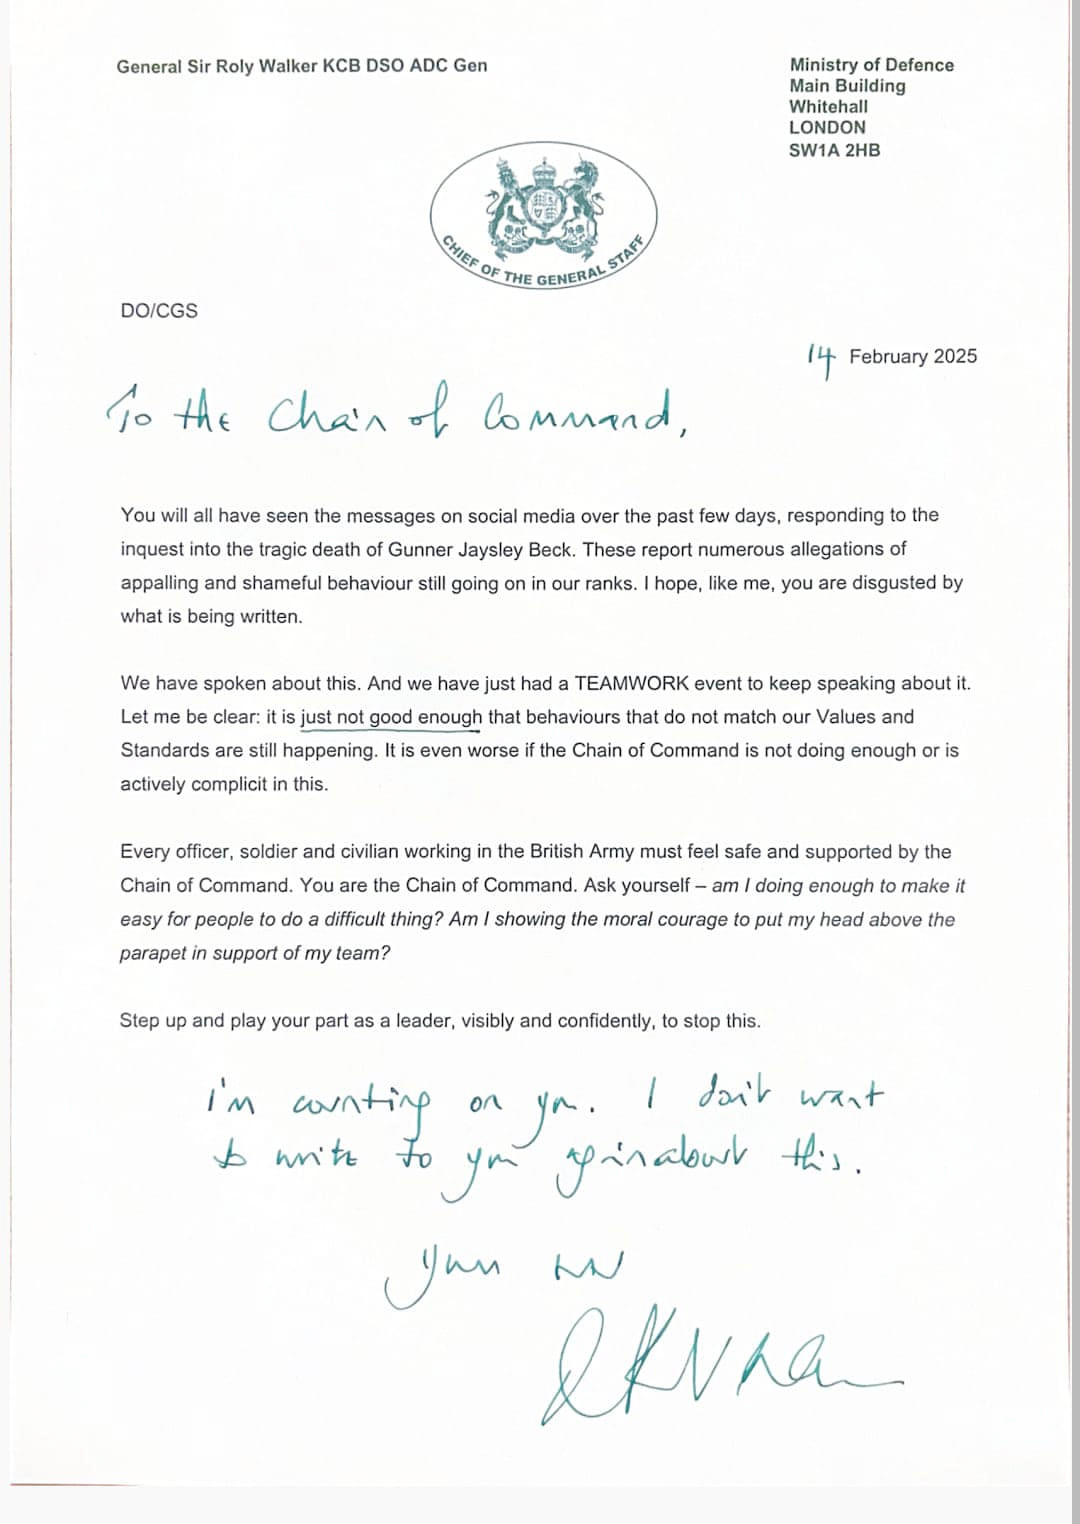 General Sir Roly Walker KCB DSO ADC Gen
Ministry of Defence
Main Building
Whitehall
LONDON
SW1A 2HB
CHIEF OF THE GENERAL STAFF
DO/CGS
14 February 2025
To the Chain of Command,
You will all have seen the messages on social media over the past few days, responding to the
inquest into the tragic death of Gunner Jaysley Beck. These report numerous allegations of
appalling and shameful behaviour still going on in our ranks. I hope, like me, you are disgusted by
what is being written.
We have spoken about this. And we have just had a TEAMWORK event to keep speaking about it.
Let me be clear: it is just not good enough that behaviours that do not match our Values and
Standards are still happening. It is even worse if the Chain of Command is not doing enough or is
actively complicit in this.
Every officer, soldier and civilian working in the British Army must feel safe and supported by the
Chain of Command. You are the Chain of Command. Ask yourself – am I doing enough to make it
easy for people to do a difficult thing? Am I showing the moral courage to put my head above the
parapet in support of my team?
Step up and play your part as a leader, visibly and confidently, to stop this.
I'm counting on you. I don't want
to write to you again about this.